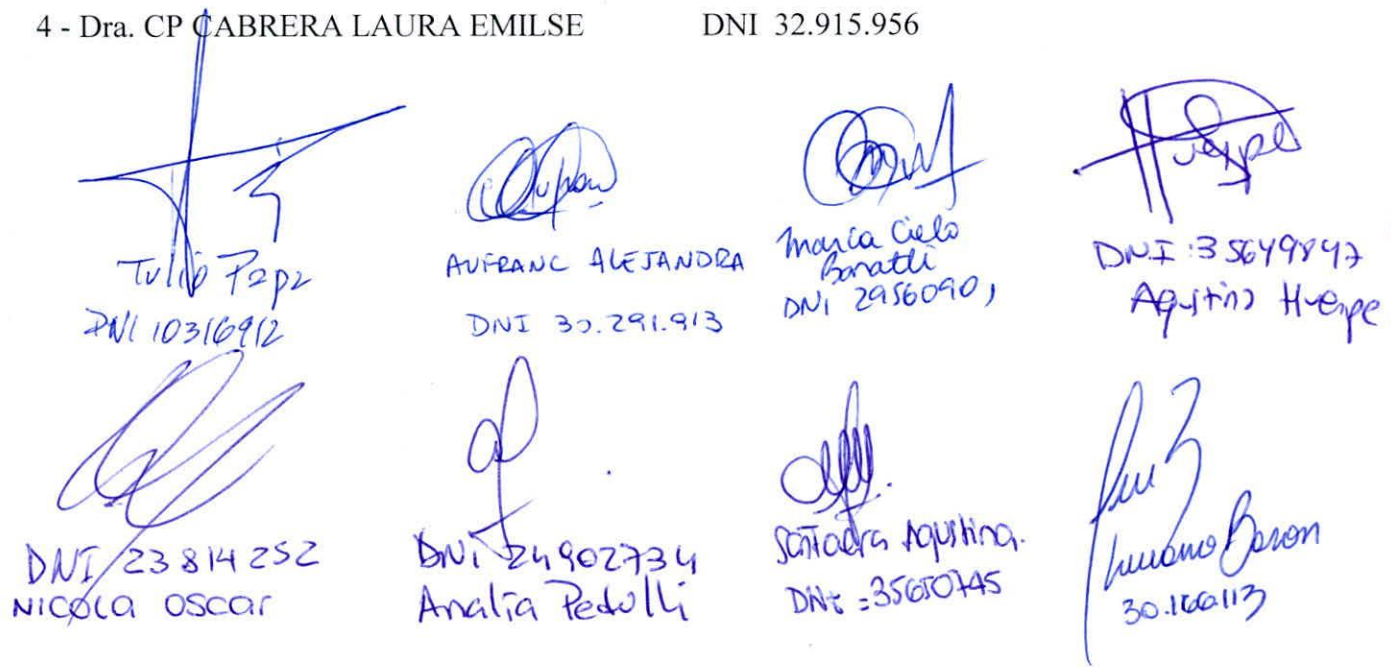 4 - Dra. CP CABRERA LAURA EMILSE DNI 32.915.956
Tulio Papa
DNI 10316912
AUFRANC ALEJANDRA
DNI 30.291.913
Maria Cielo
Bonatti
DNI 29560901
DNI: 35649847
Agustina Huespe
DNI 23814252
NICOLA OSCAR
DNI 24902734
Analia Pedolli
Santadra Agustina.
DNI = 35650745
Luciano Baron
30.166.113